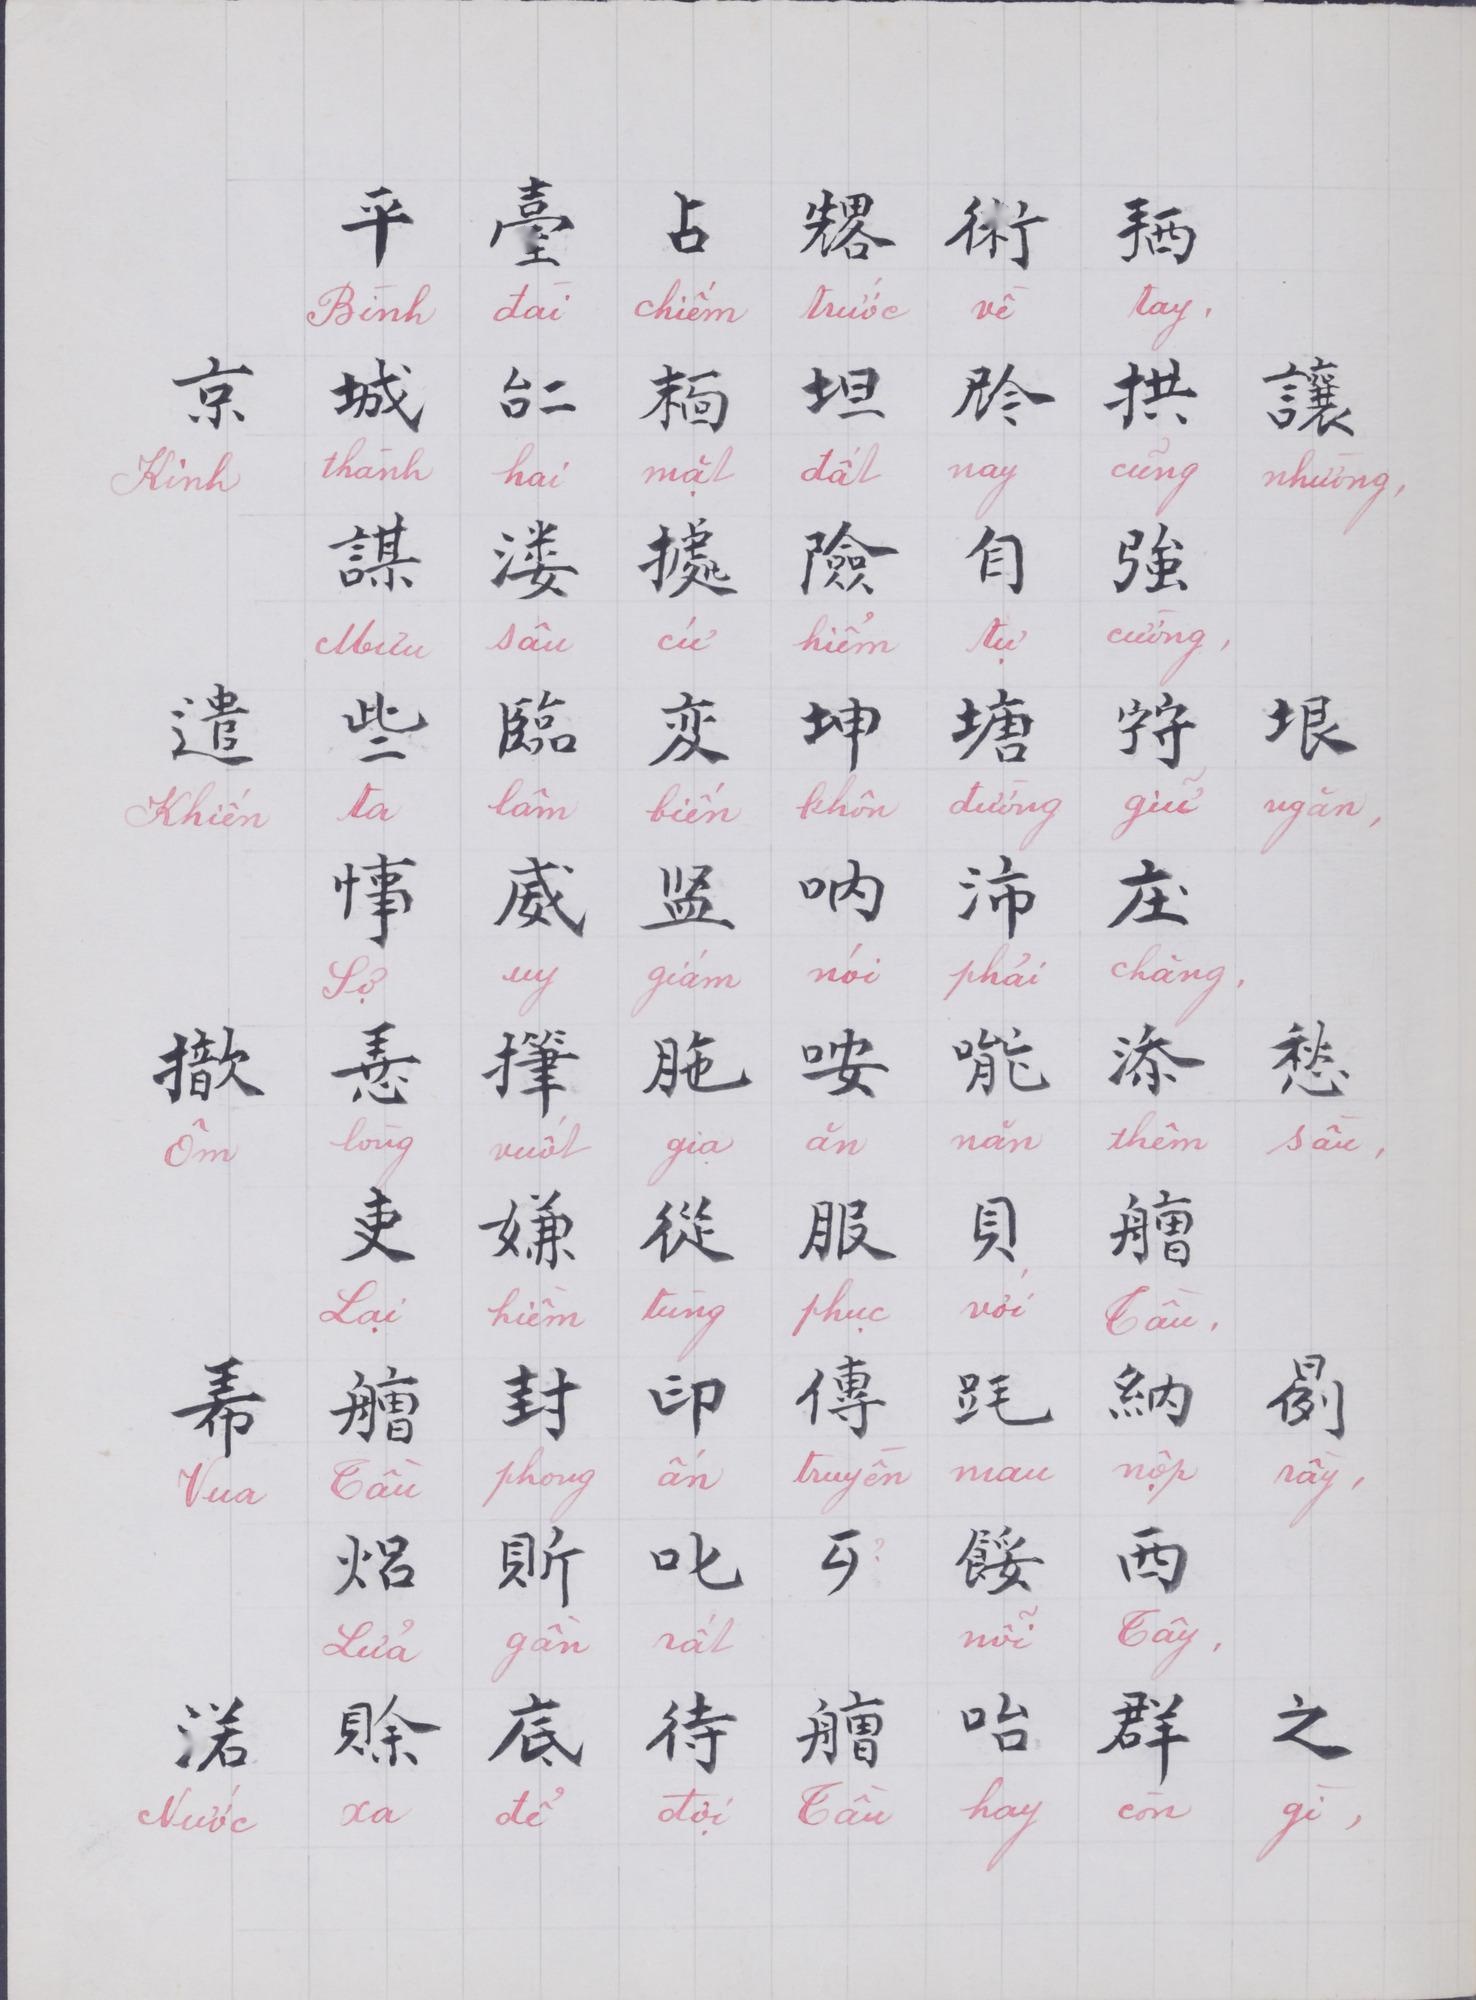 平臺占𠓀術𢬣
Bình đài chiếm trước về tay,
京城𠄩𩈘坦𫢩拱讓
Kinh thành hai mặt đất nay cũng nhường,
謀溇據險自強
Mưu sâu cứ hiểm tự cường,
遣些臨変坤塘𡨹垠
Khiến ta lâm biến khôn đường giữ ngăn,
㤖威監吶沛庄
Sợ uy giám nói phải chăng,
𢜠挥胣咹㘃添愁
Ôm lòng vuốt gịa ăn năn thêm sầu,
吏嫌從服貝艚
Lại hiềm tùng phục với Tầu,
𢂜艚封印傳𨀐納𣈙
Vua Tầu phong ấn truyền mau nộp rầy,
焒𧵆叱𠃣?餒西
Lửa gần rất nỗi Tây,
渃賖底待艚咍群之
Nước xa để đợi Tầu hay còn gì,